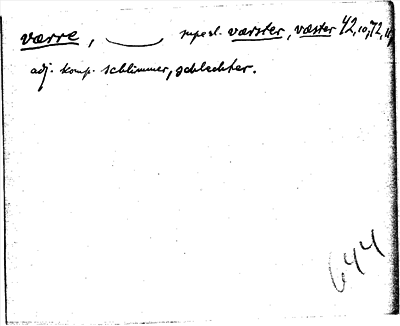 værre, superl. værster, væster 42,10, 72,
adj. komp. schlimmer, schlechter.
644